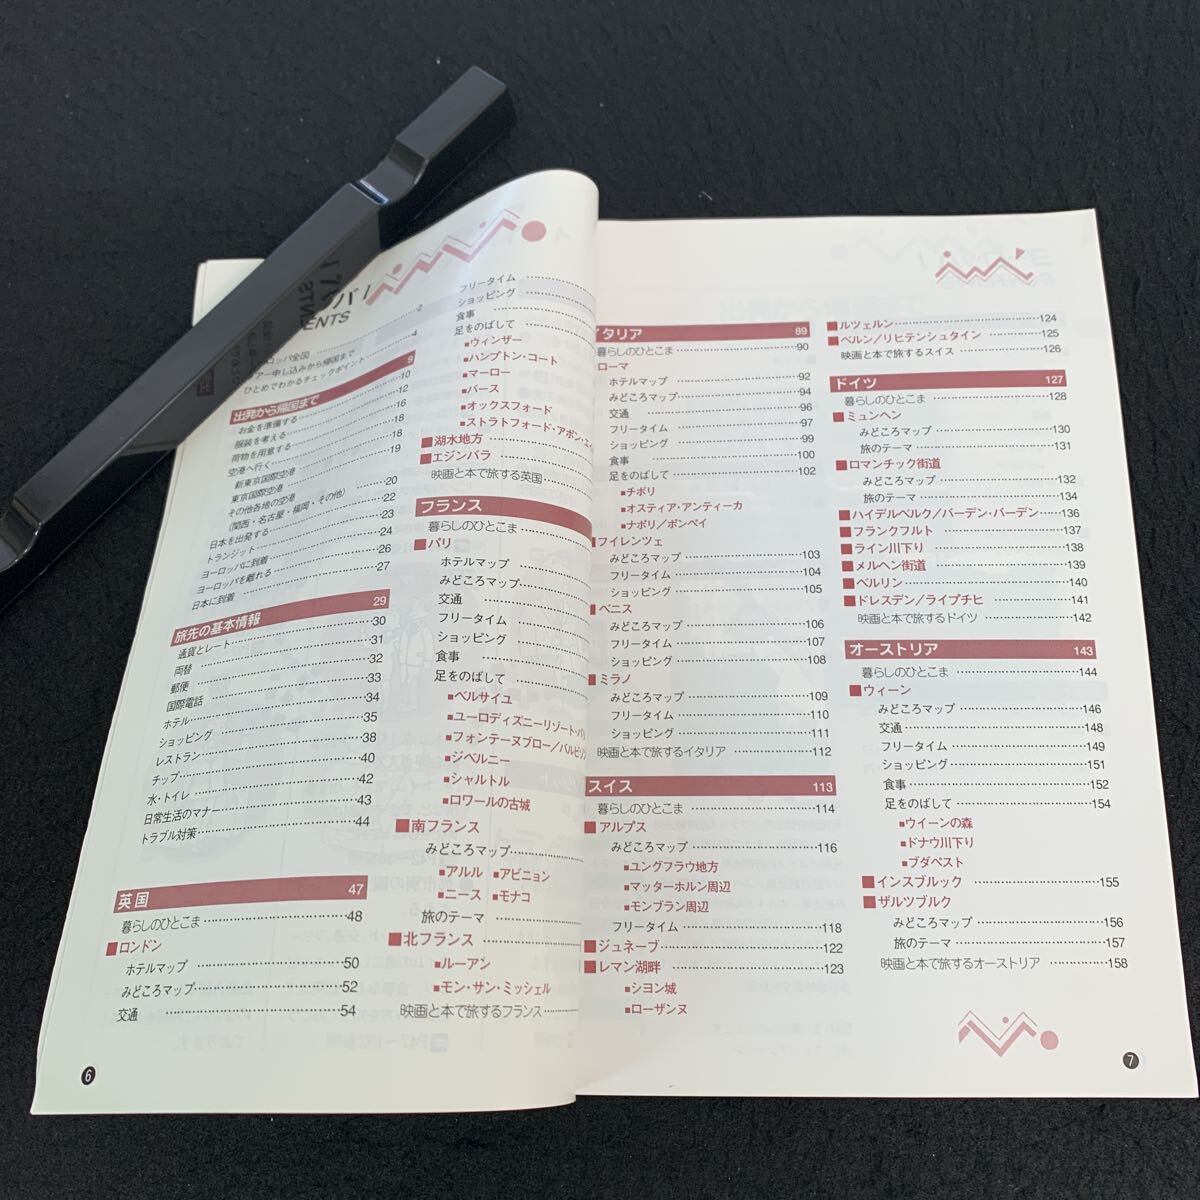 ENTS
2
ロッパ全図
4
ひとめでわかるチェックポイント
出発から帰国まで 9
お金を準備する 10
服装を考える 12
荷物を用意する 16
空港へ行く 18
新東京国際空港 18
東京国際空港 19
その他各地の空港
(関西・名古屋・福岡・その他) 20
日本を出発する 22
トランジット 23
ヨーロッパに到着 24
ヨーロッパを離れる 26
日本に到着 27
旅先の基本情報 29
通貨とレート 30
両替 31
郵便 32
国際電話 33
ホテル 34
ショッピング 35
レストラン 38
チップ 40
水・トイレ 42
日常生活のマナー 43
トラブル対策 44
英国 47
暮らしのひとこま 48
■ロンドン
ホテルマップ 50
みどころマップ 52
交通 54
フリータイム
ショッピング
食事
足をのばして
■ウィンザー
■ハンプトン・コート
■マーロー
■バース
■オックスフォード
■ストラトフォード・アポン・
■湖水地方
■エジンバラ
映画と本で旅する英国
フランス
暮らしのひとこま
■パリ
ホテルマップ
みどころマップ
交通
フリータイム
ショッピング
食事
足をのばして
■ベルサイユ
■ユーロディズニーリゾート・パリ
■フォンテーヌブロー/バルビゾン
■ジベルニー
■シャルトル
■ロワールの古城
■南フランス
みどころマップ
■アルル ■アビニョン
■ニース ■モナコ
旅のテーマ
■北フランス
■ルーアン
■モン・サン・ミッシェル
映画と本で旅するフランス
6
イタリア 89
暮らしのひとこま 90
ローマ
ホテルマップ 92
みどころマップ 94
交通 96
フリータイム 97
ショッピング 99
食事 100
足をのばして 102
■チボリ
■オスティア・アンティーカ
■ナポリ/ポンペイ
■フイレンツェ
みどころマップ 103
フリータイム 104
ショッピング 105
■ベニス
みどころマップ 106
フリータイム 107
ショッピング 108
■ミラノ
みどころマップ 109
フリータイム 110
ショッピング 111
映画と本で旅するイタリア 112
スイス 113
暮らしのひとこま 114
■アルプス
みどころマップ 116
■ユングフラウ地方
■マッターホルン周辺
■モンブラン周辺
フリータイム 118
■ジュネーブ 122
■レマン湖畔 123
■シヨン城
■ローザンヌ
■ルツェルン 124
■ベルン/リヒテンシュタイン 125
映画と本で旅するスイス 126
ドイツ 127
暮らしのひとこま 128
■ミュンヘン
みどころマップ 130
旅のテーマ 131
■ロマンチック街道
みどころマップ 132
旅のテーマ 134
■ハイデルベルク/バーデン・バーデン 136
■フランクフルト 137
■ライン川下り 138
■メルヘン街道 139
■ベルリン 140
■ドレスデン/ライプチヒ 141
映画と本で旅するドイツ 142
オーストリア 143
暮らしのひとこま 144
■ウィーン
みどころマップ 146
交通 148
フリータイム 149
ショッピング 151
食事 152
足をのばして 154
■ウイーンの森
■ドナウ川下り
■ブダペスト
■インスブルック 155
■ザルツブルク
みどころマップ 156
旅のテーマ 157
映画と本で旅するオーストリア 158
7